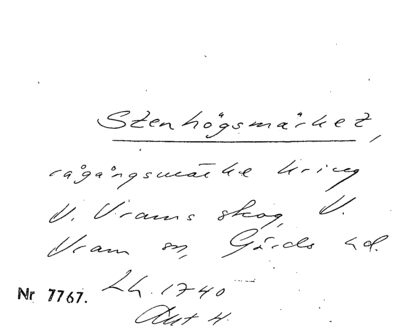 Stenhögsmärket,
rågångsmärke kring
V. Vrams skog, V.
Vram sn, Gärds hd.
Nr 7767. Lh. 1740
Akt 4.